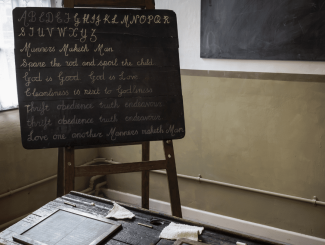 A B C D E F G H I J K L M N O P Q R
S T U V W X Y Z
Manners Maketh Man
Spare the rod and spoil the child.
God is Good. God is Love
Cleanliness is next to Godliness
Thrift obedience truth endeavour
Thrift obedience truth endeavour
Love one another Manners maketh Man